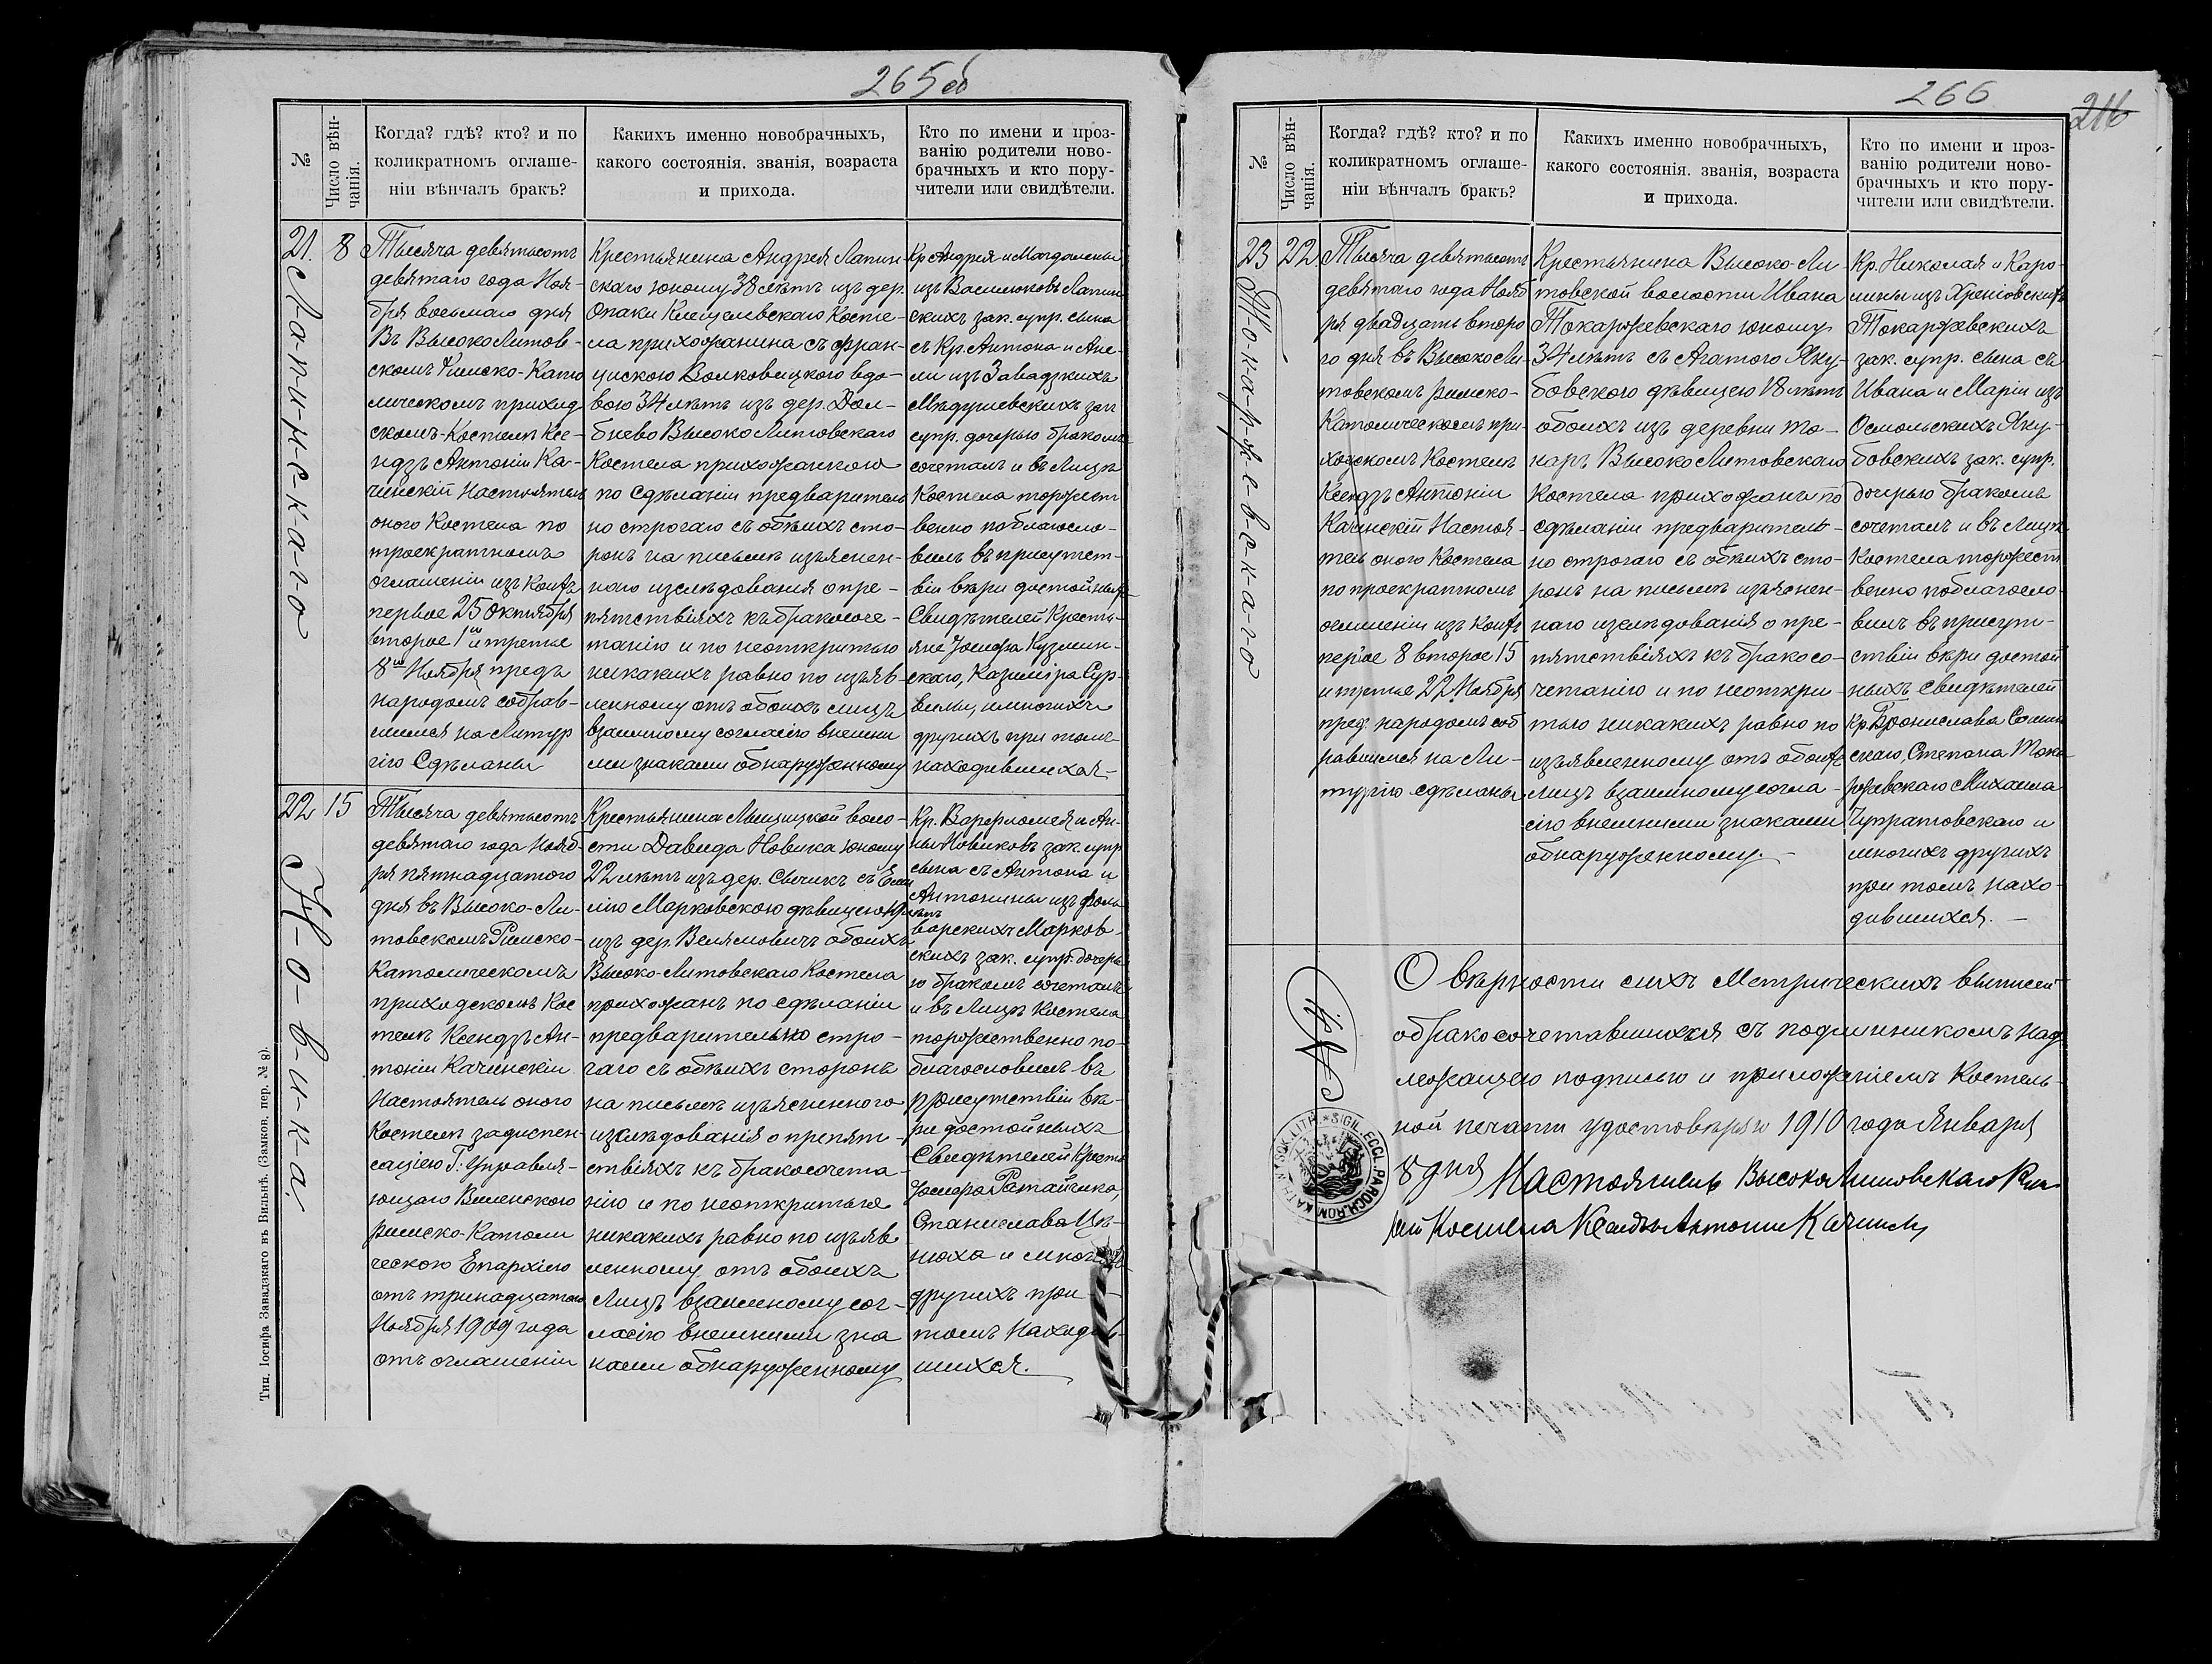 265 об
№
Число вѣн-
чанія.
Когда? гдѣ? кто? и по
коликратномъ оглаше-
ніи вѣнчалъ бракъ?
Какихъ именно новобрачныхъ,
какого состоянія. званія, возраста
и прихода.
Кто по имени и проз-
ванію родители ново-
брачныхъ и кто пору-
чители или свидѣтели.
21.
8
Л-а-п-и-н-с-к-а-г-о
Тысяча девятьсотъ
девятаго года Ноя-
бря восьмаго дня
Въ Высоко Литов-
скомъ Римско-Като
лическомъ приход
скомъ-Костелѣ Ксе-
ндзъ Антоній Ка-
чинскій Настоятель
оного Костела по
троекратномъ
оглашеніи изъ коихъ
первое 25 октября
второе 1го и третье
8го Ноября предъ
народомъ собрав-
шимся на Литур
гію Сдѣланы
Крестьянина Андрея Лапин-
скаго юношу 38 лѣтъ изъ дер.
Опаки Клещелевскаго Косте-
ла прихожанина съ Фран-
циского Волковицкого вдо-
вою 34 лѣтъ изъ дер. Дол-
бнево Высоко Литовскаго
Костела прихожанкою
по Сдѣланіи предваритель
но строгаго съ обѣихъ сто-
ронъ на письмѣ изъяснен-
наго изслѣдованія о пре-
пятствіяхъ къ бракосоче-
танію и по неоткрытью
никакихъ равно по изъяв-
ленному отъ обоихъ лицъ
взаимному согласію внешни
ми знаками обнаруженному
Кр Андрея и Магдалены
изъ Василюковъ Лапин
скихъ зак. супр. сына
съ Кр. Антона и Ане-
ли изъ Завадзкихъ
Мѣдушевскихъ зак
супр. дочерью бракомъ
сочеталъ и въ Лицѣ
Костела торжест
венно поблагосло-
вилъ въ присутст-
віи вѣри достойныхъ
Свидѣтелей Кресть-
янъ Іосифа Кузмин-
скаго, Казиміра Сур-
вилы, и многихъ
другихъ при томъ
находившихся-
22
15
Н-о-в-и-к-а.
Тысяча девятьсотъ
девятаго года Нояб-
ря пятнадцатого
дня въ Высоко-Ли-
товскомъ Римско-
Католическомъ
приходскомъ Кос
телѣ Ксендзъ Ан-
тоній Качинскій
Настоятель оного
Костела задиспен-
саціею Г: Управля-
ющаго Виленского
римско-Католи
ческою Епархіею
отъ тринадцатаго
Ноября 1909 года
отъ оглашеніи
Крестьянина Мыщицкой воло-
сти Давида Новика юношу
22 лѣтъ изъ дер. Сычикъ съ Еми
ліею Марковскою дѣвицею 19 лѣтъ
изъ дер. Велямовичъ обоихъ
Высоко-Литовскаго Костела
прихожанъ по сдѣланіи
предварительно стро-
гаго съ обѣихъ сторонъ
на письмѣ изъясненного
изслѣдованія о препят-
ствіяхъ къ бракосочета-
нію и по неоткрытью
никакихъ равно по изъяв
ленному отъ обоихъ
Лицъ взаимному сог-
ласію внешними зна
ками обнаруженному
Кр. Варфоломея и Ан-
ны Новиковъ зак супр
сына съ Антона и
Антонины изъ Фоль
варскихъ Марков-
скихъ зак. супр. дочерь
ю бракомъ сочеталъ
и въ Лицѣ Костела
торжественно по-
благословилъ въ
присутствіи вѣ-
ри достойныхъ
Свидѣтелей Кресть
Іосифа Ратайчика,
Станислава
и многихъ
другихъ при-
томъ находив-
шихся.
Тип. Іосифа Завадзкаго въ Вильнѣ. (Замков. пер. № 8).
266
216
№
Число вѣн-
чанія.
Когда? гдѣ? кто? и по
коликратномъ оглаше-
ніи вѣнчалъ бракъ?
Какихъ именно новобрачныхъ,
какого состоянія. званія, возраста
и прихода.
Кто по имени и проз-
ванію родители ново-
брачныхъ и кто пору-
чители или свидѣтели.
23
22.
Т-о-к-а-р-ж-е-в-с-к-а-г-о
Тысяча девятьсотъ
девятаго года Нояб
ря двадцать второ
го дня въ Высоко Ли-
товскомъ римско-
Католическомъ при-
ходскомъ Костелѣ
Ксендзъ Антоній
Качинскій Настоя-
тель оного Костела
по троекратномъ
оглашеніи изъ коихъ
первое 8 второе 15
и третье 22 Ноября
пред. народомъ соб
равшимся на Ли-
тургію сдѣланы
Крестьянина Высоко-Ли-
товской волости Ивана
Токаржевскаго юношу
34 лѣтъ съ Агатого Яку-
бовского дѣвицею 18 лѣтъ
обоихъ изъ деревни То-
каръ Высоко Литовскаго
Костела прихожанъ по
сдѣланіи предваритель-
но строгаго съ обѣихъ сто-
ронъ на письмѣ изъяснен-
наго изслѣдованія о пре-
пятствіяхъ къ бракосо-
четанію и по неоткры-
тью никакихъ равно по
изъявленному отъ обоихъ
лицъ взаимному согла-
сію внешними знаками
обнаруженному.-
Кр. Николая и Каро-
лины изъ Хрейовскихъ
Токаржевскихъ
зак. супр. сына съ
Ивана и Маріи изъ
Осмольскихъ Яку-
бовскихъ зак. супр.
дочерью бракомъ
сочеталъ и въ Лицѣ
Костела торжест
венно поблагосло-
вилъ въ присут-
ствіи вѣри достой
ныхъ свидѣтелей
Кр. Бронислава
скаго, Степана Тока
ржевскаго Михаила
Чупратовскаго и
многихъ другихъ
при томъ нахо-
дившихся. -
О вѣрности сихъ Метрическихъ выписей
обракосочетавшихся съ подлинникомъ над
лежащею подписью и приложеніемъ Костель-
ной печати удостовѣряю 1910 года Января
8 дня Настоятель Высоко Литовскаго Рим
Костела Ксендзъ Антоній Качинскі
SIGIL. ECCL. PAROCH. ROM. KATH.